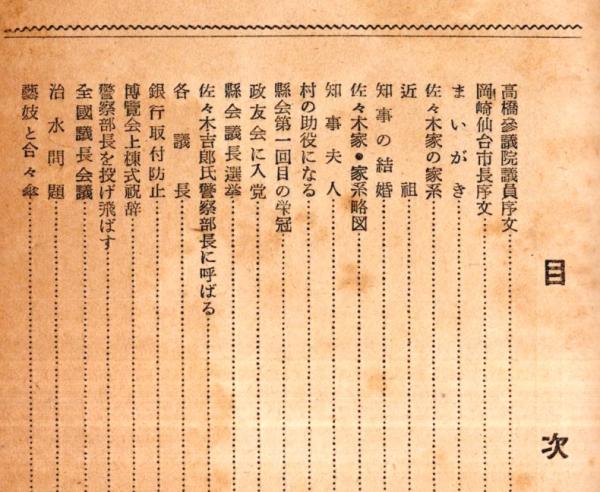 目次
高橋參議院議員序文
岡崎仙台市長序文
まいがき
佐々木家の家系
近祖
知事の結婚
佐々木家・家系略図
知事夫人
村の助役になる
縣会第一回目の栄冠
政友会に入党
縣会議長選挙
佐々木吉郎氏警察部長に呼ばる
各議長
銀行取付防止
博覽会上棟式祝辞
警察部長を投げ飛ばす
全國議長会議
治水問題
藝妓と合々傘